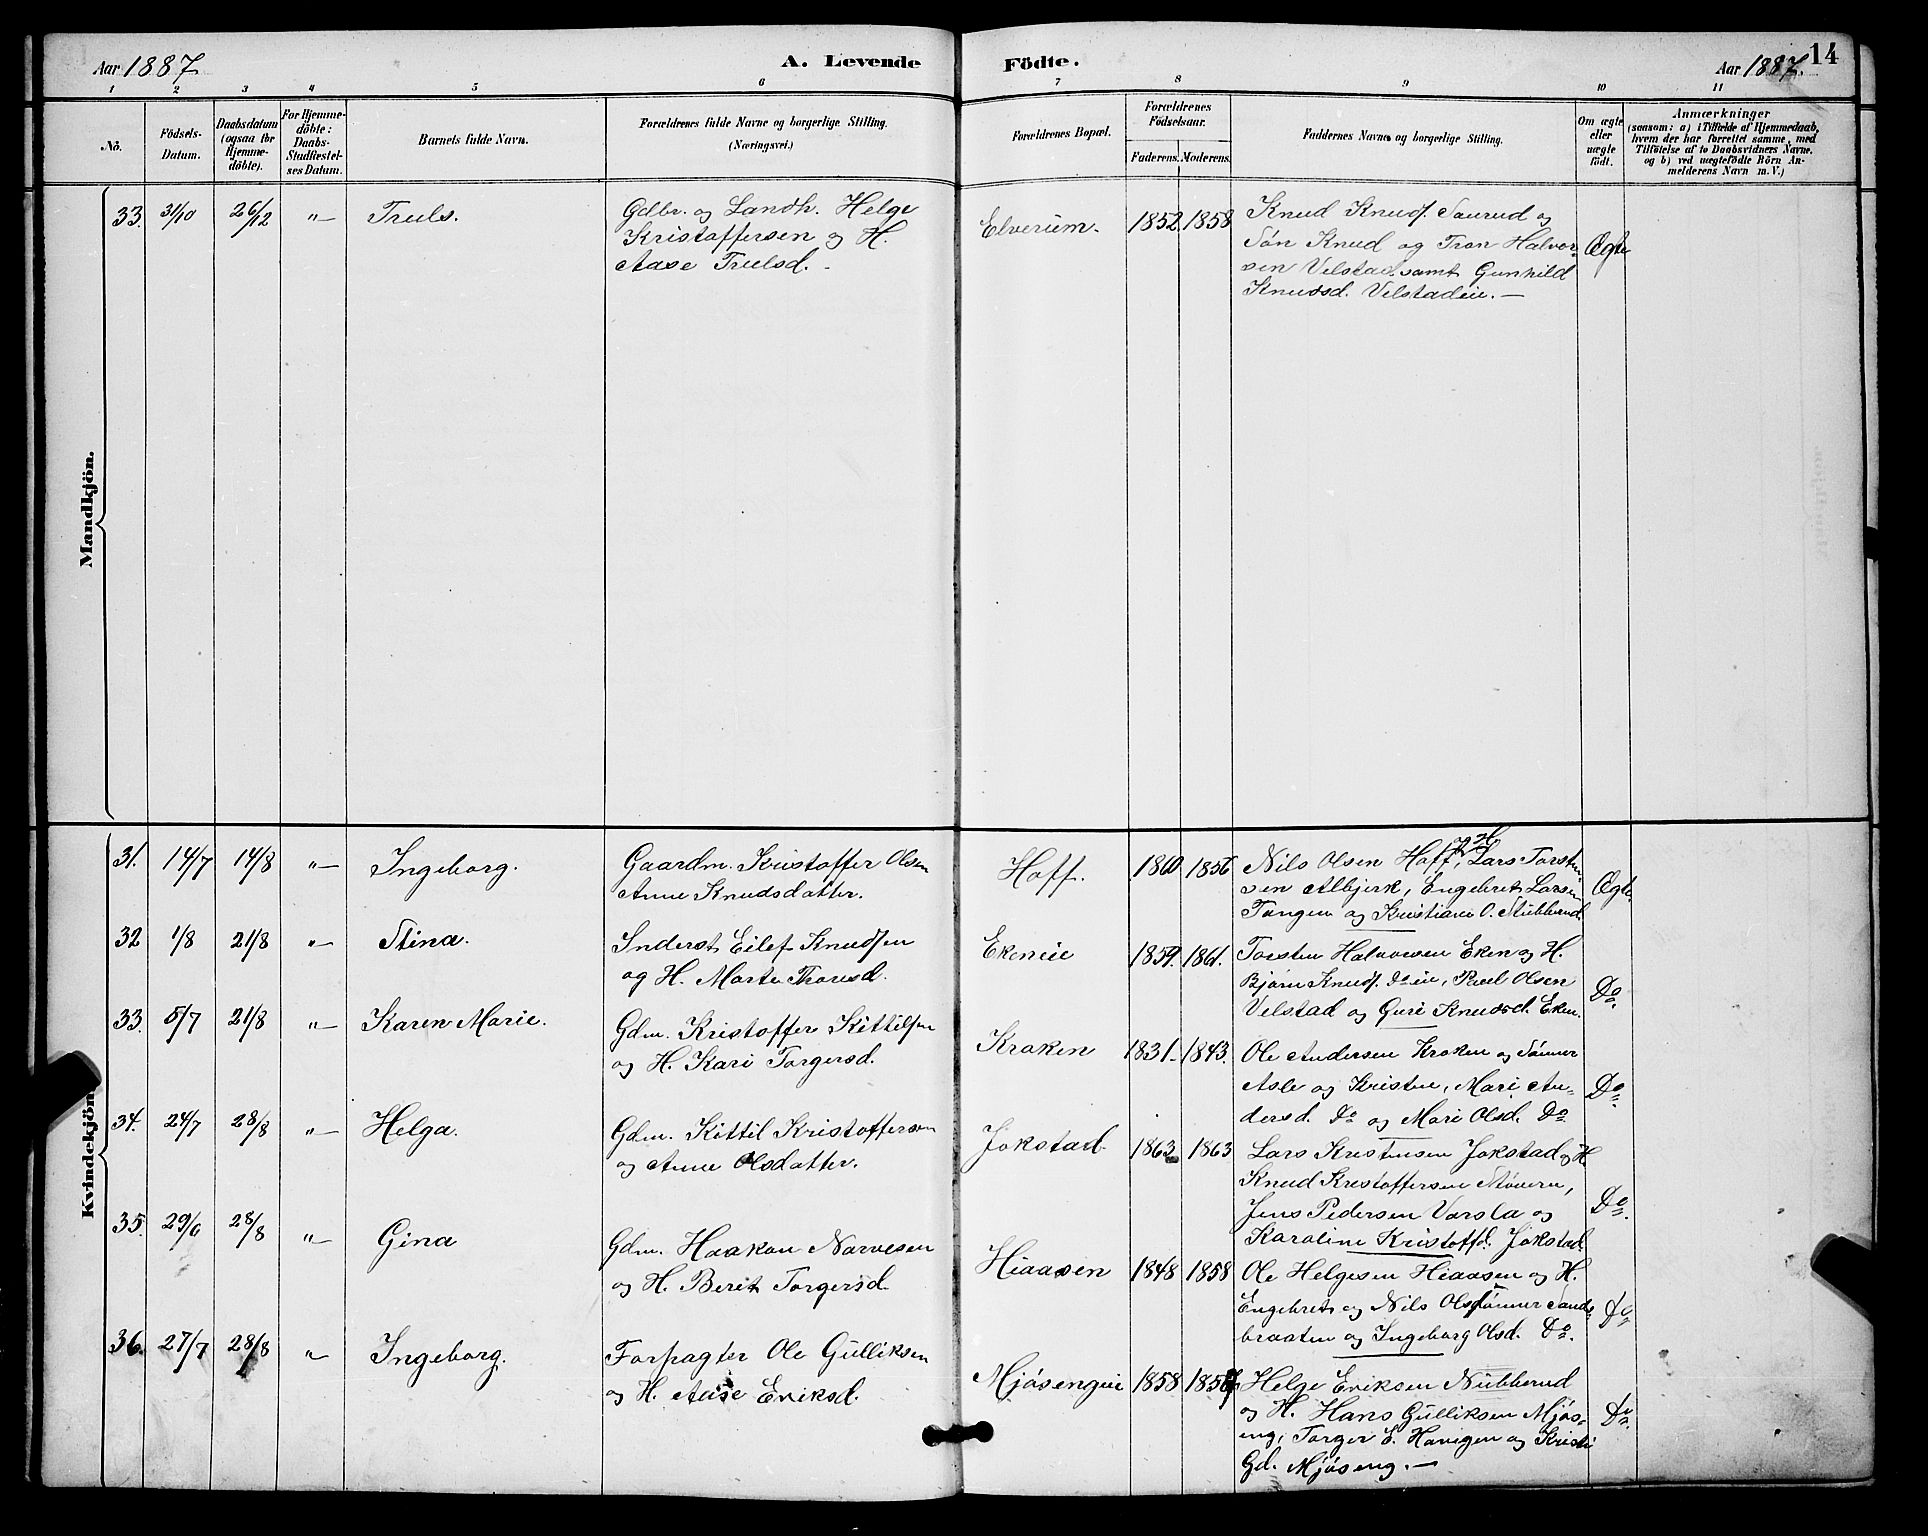 Aar 1887
A. Levende
Födte.
Aar 1887.
14
1 2 3 4 5 6 7 8 9 10 11
No.
Födsels-
Datum.
Daabsdatum
(ogsaa for
Hjemme-
döbte).
For Hjemme-
döbte:
Daabs-
Stadfæstel-
ses Datum.
Barnets fulde Navn.
Forældrenes fulde Navne og borgerlige Stilling.
(Næringsvei.)
Forældrenes Bopæl.
Forældrenes
Födselsaar.
Faderens. Moderens.
Faddernes Navne og borgerlige Stilling.
Om ægte
eller
uægte
født.
Anmærkninger
(saasom: a) i Tilfælde af Hjemmedaab,
hvem der har forrettet samme, med
Tilföielse af to Daabsvidners Navne.
og b) ved uægtefödte Börn An-
melderens Navn m. V.)
Mandkjön.
33. 31/10 26/12 "— Truls.
Gdbr. og Landh. Helge
Kristoffersen og H.
Aase Trulsd. -
Elverum. 1852. 1858
Knud Knuds. Saurud og
Søn Knud og Tron Halvor-
sen Velstad samt Gunhild
Knudsd. Velstadeie. —
Ægte
Kvindekjön.
31. 14/7 14/8 "— Ingeborg.
Gaardm. Kristoffer Olsen
Anne Knudsdatter.
Hoff. 1860 1856
og H.
Nils Olsen Hoff, Lars Torsten-
sen Albjerk, Engebret Larsen
Tangen og Kristiane O. Stubberud.
Ægte.
32 1/8 21/8 "— Stina.
Inderst Eilef Knudsen
og H. Marte Thorsd.
Ekeneie 1859. 1861.
Torsten Halvorsen Eken og H.
Bjørn Knuds. Do eie, Paul Olsen
Velstad og Guri Knudsd. Eken.
Do.
33. 5/7 21/8 "— Karen Marie.
Gdm. Kristoffer Kittilsen
og H. Kari Torgersd.
Kroken 1831- 1843.
Ole Andersen Kroken og Sønner
Asle og Kristen, Mari An-
dersd. Do og Mari Olsd. Do
Do.
34. 24/7 28/8 "— Helga.
Gdm. Kittil Kristoffersen
og Anne Olsdatter.
Jokstad 1863 1863
Lars Kristensen Jokstad og H.
Knud Kristoffersen Møvern,
Jens Pedersen Varsla og
Karoline Kristoffd. Jokstad.
Do.
35. 29/6 28/8 "— Gina
Gdm. Haakon Narvesen
og H. Berit Torgersd.
Hiaasen 1848 1858
Ole Helgesen Hiaasen og H.
Engebret og Nils Olssønner Sand-
braaten og Ingeborg Olsd. Do.
Do
36. 27/7 28/8 "— Ingeborg.
Forpagter Ole Gulliksen
og H. Aase Eriksd.
Mjøsengeie 1858 1857
Helge Eriksen Nubberud
og H. Hans Gulliksen Mjøs-
eng, Torger E. Haugen og Kristi
Gd. Mjøseng. —
Do.